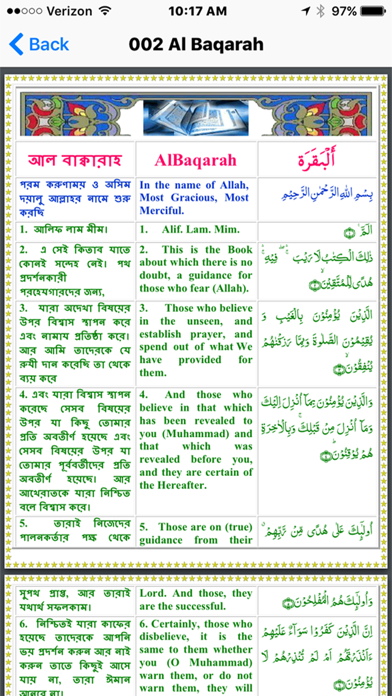 ●●○○○ Verizon 10:17 AM 97%
Back
002 Al Baqarah
আল বাক্বারাহ
AlBaqarah
أَلْبَقَرَة
পরম করুণাময় ও অসিম
দয়ালু আল্লাহর নামে শুরু
করছি
In the name of Allah,
Most Gracious, Most
Merciful.
بِسْمِ اللهِ الرَّحْمٰنِ الرَّحِيْمِ
1. আলিফ লাম মীম।
1. Alif. Lam. Mim.
الٓمّٓ ۚ﴿۱﴾
2. এ সেই কিতাব যাতে
কোনই সন্দেহ নেই। পথ
প্রদর্শনকারী
পরহেযগারদের জন্য,
2. This is the Book
about which there is no
doubt, a guidance for
those who fear (Allah).
ذٰلِكَ الْكِتٰبُ لَا رَيْبَ ۛ فِيْهِ ۛ
هُدًى لِّلْمُتَّقِيْنَ ۙ﴿۲﴾
3. যারা অদেখা বিষয়ের
উপর বিশ্বাস স্থাপন করে
এবং নামায প্রতিষ্ঠা করে।
আর আমি তাদেরকে যে
রুযী দান করেছি তা থেকে
ব্যয় করে
3. Those who believe
in the unseen, and
establish prayer, and
spend out of what We
have provided for
them.
الَّذِيْنَ يُؤْمِنُوْنَ بِالْغَيْبِ وَ
يُقِيْمُوْنَ الصَّلٰوةَ وَمِمَّا رَزَقْنٰهُمْ
يُنْفِقُوْنَ ۙ﴿۳﴾
4. এবং যারা বিশ্বাস স্থাপন
করেছে সেসব বিষয়ের
উপর যা কিছু তোমার
প্রতি অবতীর্ণ হয়েছে এবং
সেসব বিষয়ের উপর যা
তোমার পূর্ববর্তীদের প্রতি
অবতীর্ণ হয়েছে। আর
আখেরাতকে যারা নিশ্চিত
বলে বিশ্বাস করে।
4. And those who
believe in that which
has been revealed to
you (Muhammad) and
that which was
revealed before you,
and they are certain of
the Hereafter.
وَالَّذِيْنَ يُؤْمِنُوْنَ بِمَآ اُنْزِلَ اِلَيْكَ
وَمَآ اُنْزِلَ مِنْ قَبْلِكَ ۚ وَبِالْاٰخِرَةِ
هُمْ يُوْقِنُوْنَ ؕ﴿۴﴾
5. তারাই নিজেদের
পালনকর্তার পক্ষ থেকে
5. Those are on (true)
guidance from their
اُولٰٓٮِٕكَ عَلٰى هُدًى مِّنْ رَّبِّهِمْ ۗ
সুপথ প্রাপ্ত, আর তারাই
যথার্থ সফলকাম।
Lord. And those, they
are the successful.
وَاُولٰٓٮِٕكَ هُمُ الْمُفْلِحُوْنَ ﴿۵﴾
6. নিশ্চিতই যারা কাফের
হয়েছে তাদেরকে আপনি
ভয় প্রদর্শন করুন আর নাই
করুন তাতে কিছুই আসে
যায় না, তারা ঈমান
আনবে না।
6. Certainly, those who
disbelieve, it is the
same to them whether
you (O Muhammad)
warn them, or do not
warn them, they will
اِنَّ الَّذِيْنَ كَفَرُوْا سَوَآءٌ عَلَيْهِمْ
ءَاَنْذَرْتَهُمْ اَمْ لَمْ تُنْذِرْهُمْ لَا
يُؤْمِنُوْنَ ﴿۶﴾